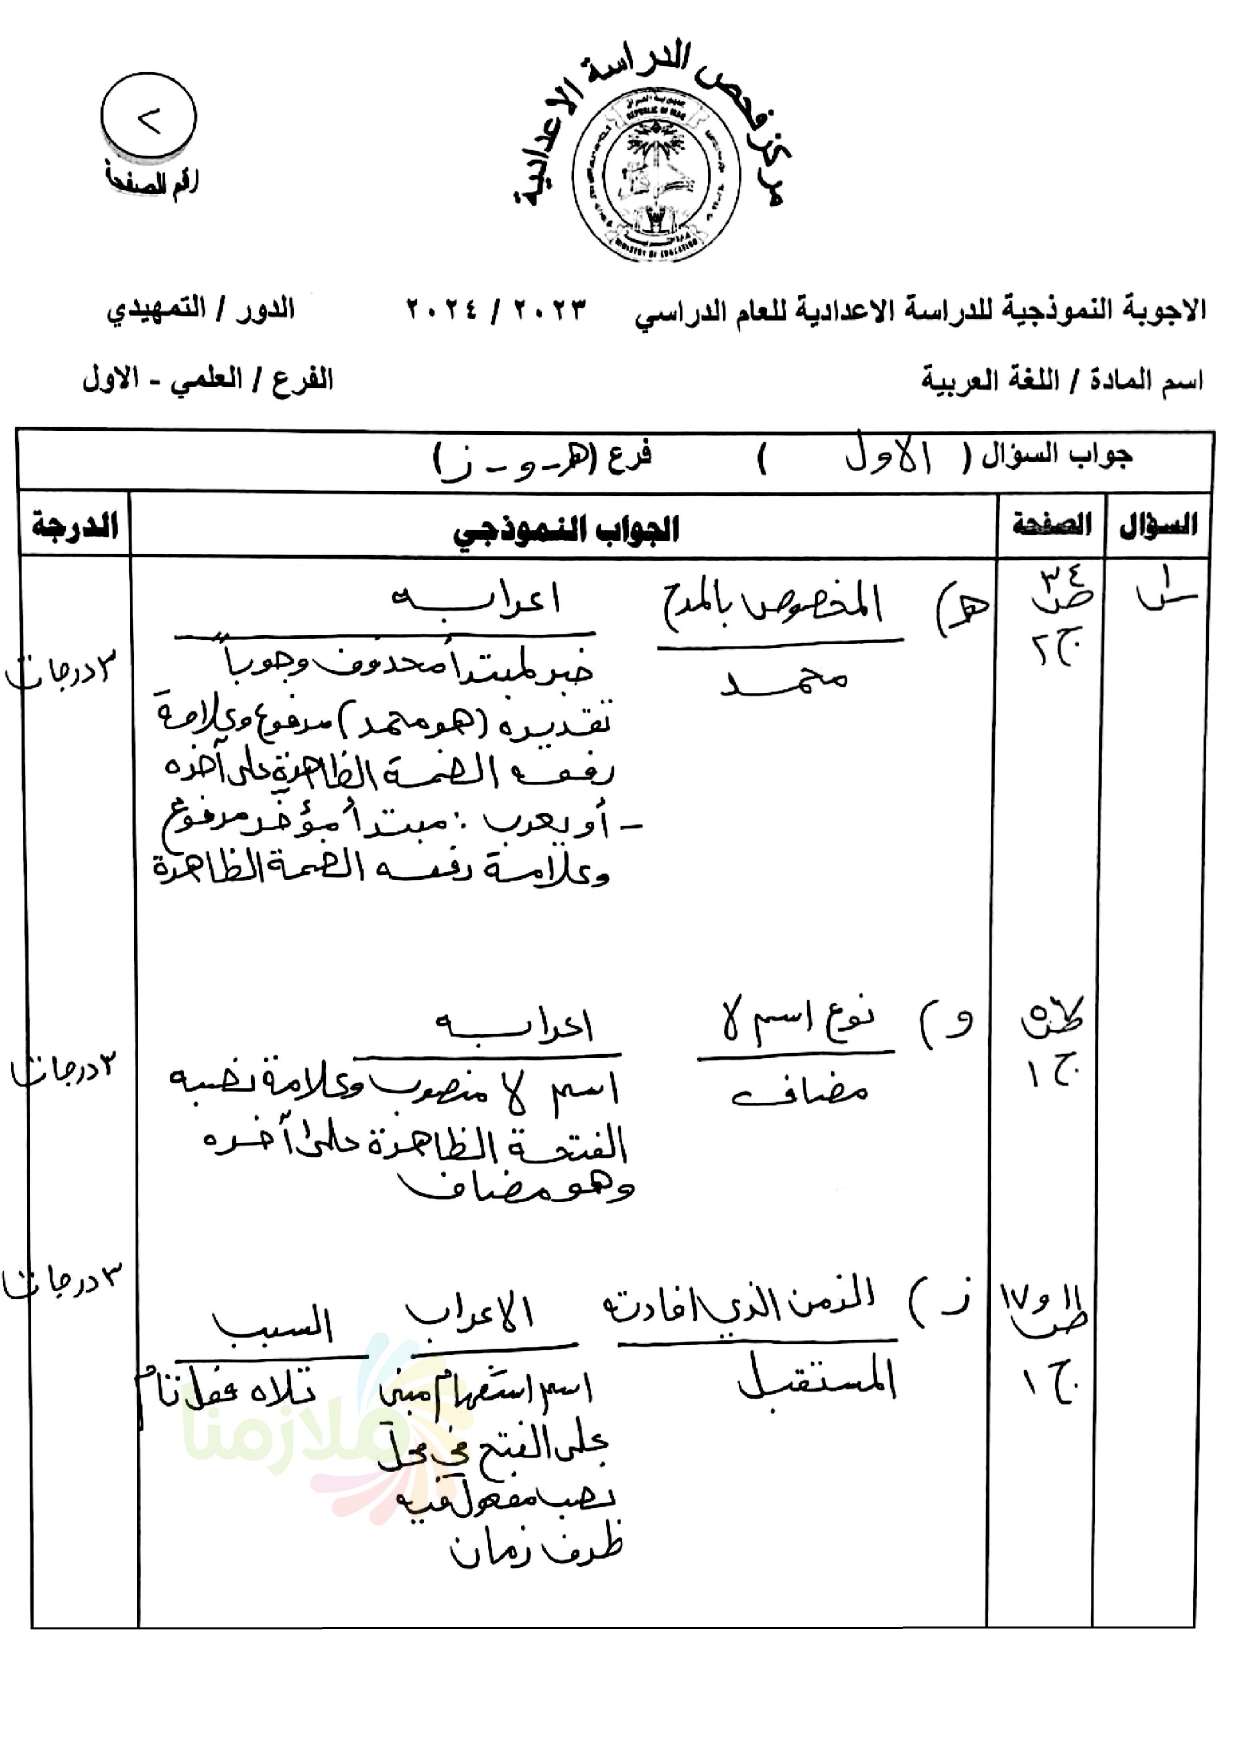 مركز فحص الدراسة الاعدادية
REPUBLIC OF IRAQ
MINISTRY OF EDUCATION
٢
رقم الصفحة
الاجوبة النموذجية للدراسة الاعدادية للعام الدراسي ٢٠٢٣ / ٢٠٢٤ الدور / التمهيدي
اسم المادة / اللغة العربية الفرع / العلمي - الاول
جواب السؤال ( الاول ) فرع (هـ - و - ز)
السؤال الصفحة الجواب النموذجي الدرجة
س١ ص ٣٤ هـ) المخصوص بالمدح اعرابه
ج٢ محمد خبر لمبتدأ محذوف وجوباً ٣ درجات
تقديره (هو محمد) مرفوع وعلامة
رفعه الضمة الظاهرة على آخره
- أو يعرب : مبتدأ مؤخر مرفوع
وعلامة رفعه الضمة الظاهرة
و) نوع اسم لا اعرابه
ج١ مضاف اسم لا منصوب وعلامة نصبه ٣ درجات
الفتحة الظاهرة على آخره
وهو مضاف
ص ١١ و ١٧ ز) الزمن الذي افادته الاعراب السبب ٣ درجات
ج١ المستقبل اسم استفهام مبني تلاه فعل تام
على الفتح في محل
نصب مفعول فيه
ظرف زمان
ملازمنا